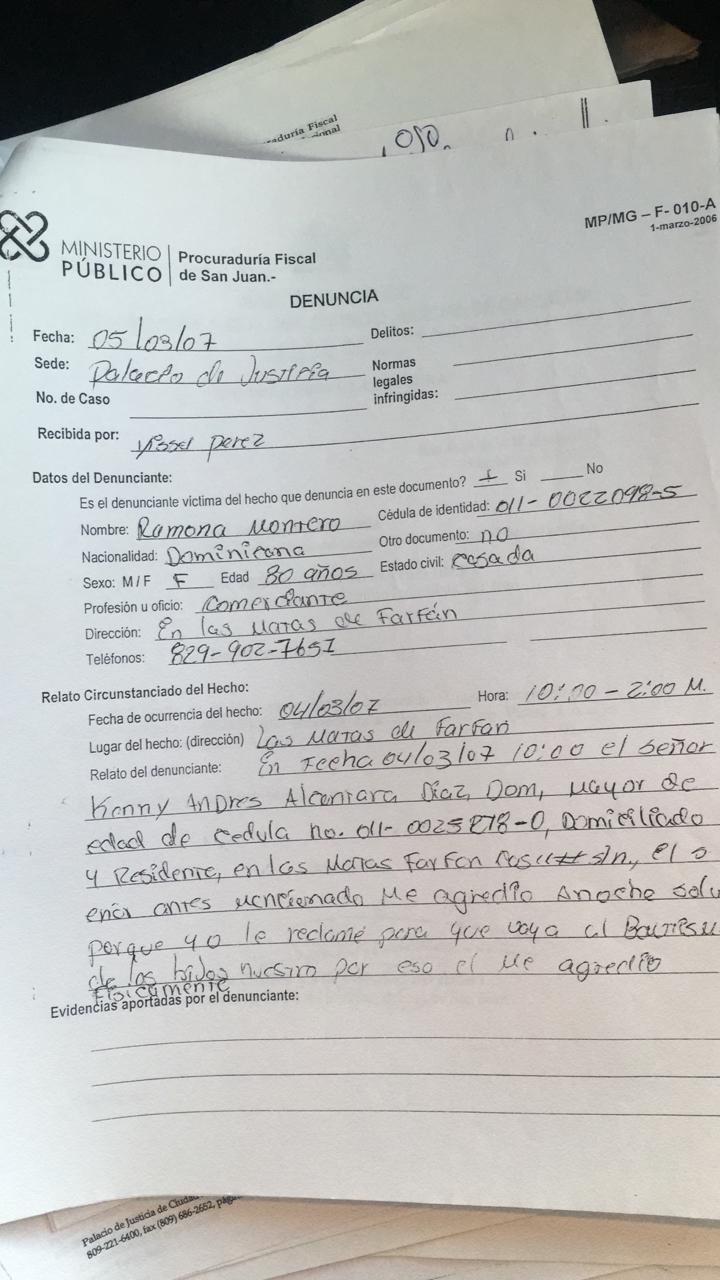 aduría Fiscal
MP/MG – F- 010-A
1-marzo-2006
MINISTERIO PÚBLICO
Procuraduría Fiscal
de San Juan.-
DENUNCIA
Fecha: 05/03/07
Delitos:
Sede: Palacio de Justicia
Normas legales infringidas:
No. de Caso
Recibida por: Yissel Perez
Datos del Denunciante:
Es el denunciante victima del hecho que denuncia en este documento? + Si No
Nombre: Ramona Montero
Cédula de identidad: 011-0022098-5
Nacionalidad: Dominicana
Otro documento: no
Sexo: M / F F Edad 30 años
Estado civil: Casada
Profesión u oficio: Comerciante
Dirección: En las Matas de Farfán
Teléfonos: 829-902-7651
Relato Circunstanciado del Hecho:
Fecha de ocurrencia del hecho: 04/03/07 Hora: 10:00 – 2:00 M.
Lugar del hecho: (dirección) Las Matas de Farfan
Relato del denunciante: En Fecha 04/03/07 10:00 el señor
Kenny Andres Alcantara Diaz, Dom, mayor de
edad de cedula no. 011- domiciliado
y Residente, en las Matas Farfan s/n, el
antes mencionado me agredio Anoche
porque yo le reclame para que vaya al
de los hijos nuestro por eso el me agredio
Fisicamente
Evidencias aportadas por el denunciante:
Palacio de Justicia de Ciuda
809-221-6400, fax (809) 686-2652, pág